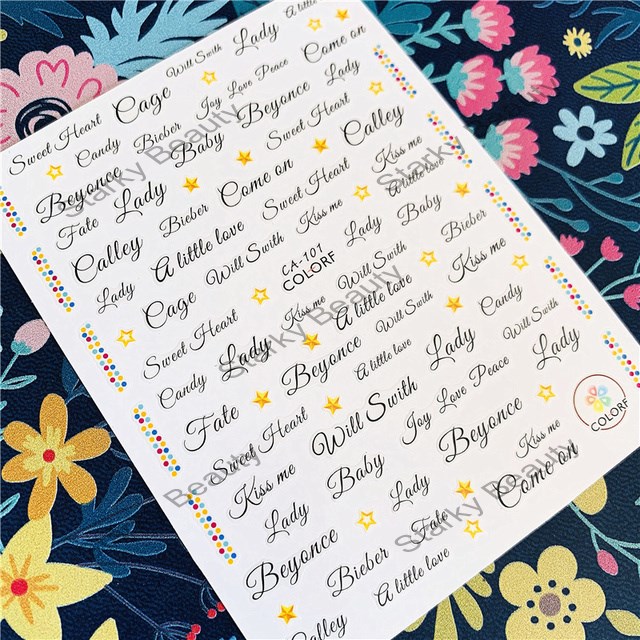 A little
Will Swith Lady Come on
Cage Joy Love Peace Lady
Sweet Heart Candy Bieber Baby Beyonce Calley
Sweet Heart
Beyonce Lady Come on Kiss me
Fate Bieber Sweet Heart A little love
Calley A little love Kiss me Lady Baby Bieber
Lady Will Swith
CA-101
COLORF
Cage Kiss me Will Swith Kiss me
Sweet Heart Lady A little love Will Swith Candy
Candy Beyonce A little love Lady Will Swith
Fate Will Swith Joy Love Peace Lady
Sweet Heart Baby Beyonce COLORF
Kiss me Lady Kiss me
Lady Fate Come on
Beyonce Bieber A little love
Calley
Starky Beauty
Starky Beauty
Starky Beauty
Beauty
Starky Beauty